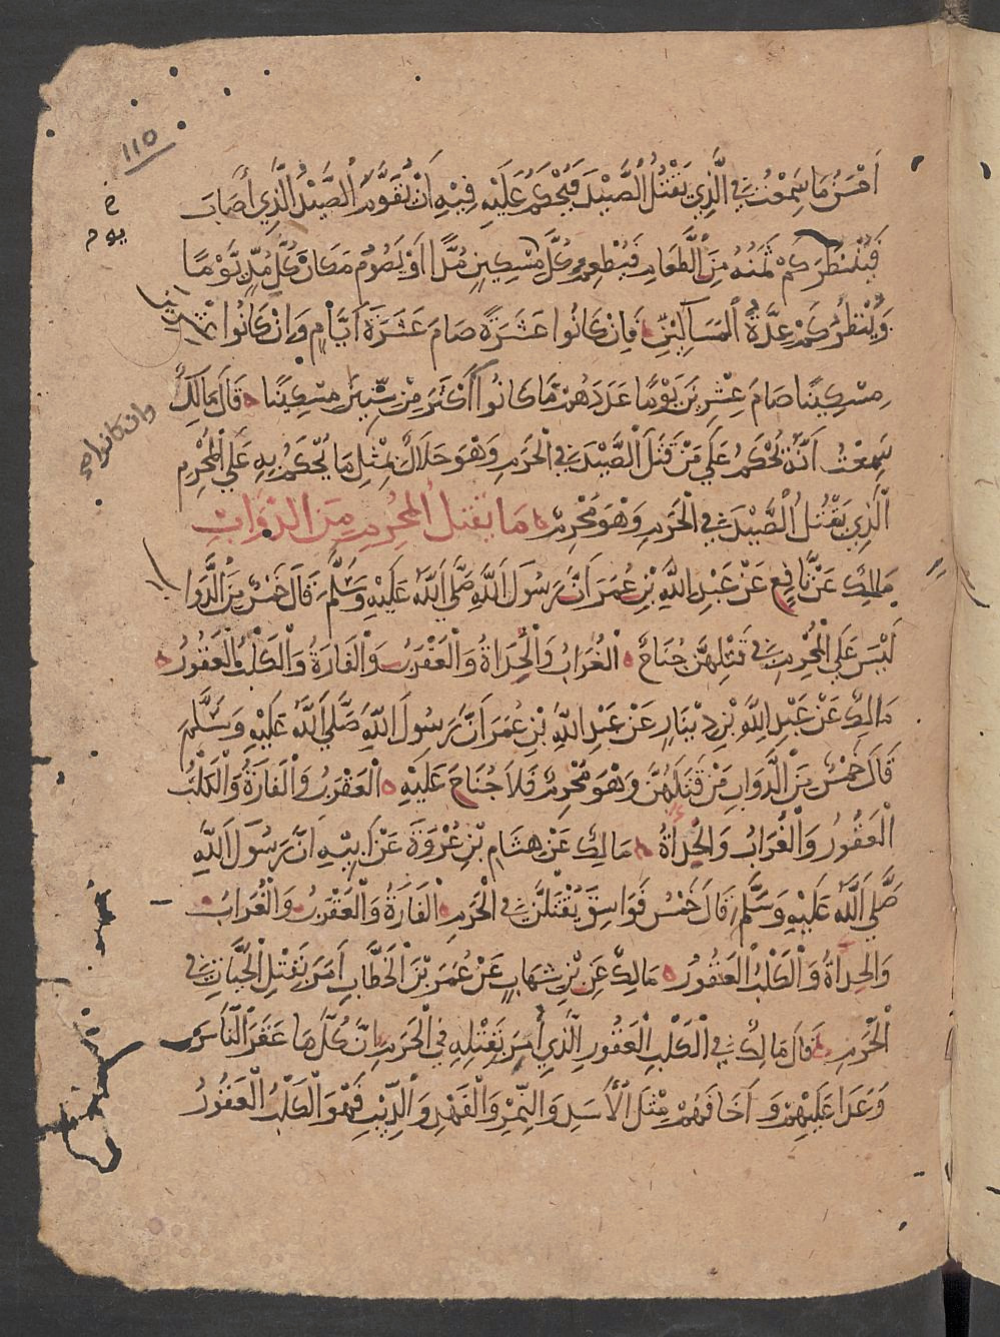 ١١٥
أَحْسَنُ مَا سَمِعْتُ فِي الَّذِي يَقْتُلُ الصَّيْدَ فَيُحْكَمُ عَلَيْهِ فِيْهِ اَنْ يُقَوَّمَ الصَّيْدُ الَّذِي أَصَابَ
يوم
فَيُنْظَرَ كَمْ ثَمَنُهُ مِنَ الطَّعَامِ فَيُطْعِمُ كُلَّ مِسْكِينٍ مُدًّا اَوْ يَصُوْمُ مَكَانَ كُلِّ مُدٍّ يَّوْمًا
وَيُنْظَرُ كَمْ عِدَّةُ الْمَسَاكِيْنِ فَاِنْ كَانُوا عَشَرَةً صَامَ عَشَرَةَ اَيَّامٍ وَاِنْ كَانُوا عِشْرِيْنَ
مِسْكِينًا صَامَ عِشْرِيْنَ يَوْمًا عَدَدَهُمْ مَّا كَانُوا اَكْثَرَ مِنْ سِتِّينَ مِسْكِينًا قَالَ مَالِكٌ
وان كانوا
سَمِعْتُ اَنَّهُ يُحْكَمُ عَلَي مَنْ قَتَلَ الصَّيْدَ فِي الْحَرَمِ وَهْوَ حَلَالٌ بِمِثْلِ مَا يُحْكَمُ بِهِ عَلَي الْمُحْرِمِ
الَّذِي يَقْتُلُ الصَّيْدَ فِي الْحَرَمِ وَهْوَ مُحْرِمٌ مَا يَقْتُلُ الْمُحْرِمُ مِنَ الدَّوَابِّ
مَالِكٌ عَنْ نَّافِعٍ عَنْ عَبْدِ اللهِ بْنِ عُمَرَ اَنَّ رَسُولَ اللهِ صَلَّي اللهُ عَلَيْهِ وَسَلَّمَ قَالَ خَمْسٌ مِنَ الدَّوَا
لَيْسَ عَلَي الْمُحْرِمِ فِي قَتْلِهِنَّ جُنَاحٌ الْغُرَابُ وَالْحِدَاَةُ وَالْعَقْرَبُ وَالْفَارَةُ وَالْكَلْبُ الْعَقُورُ
مَالِكٌ عَنْ عَبْدِ اللهِ بْنِ دِيْنَارٍ عَنْ عَبْدِ اللهِ بْنِ عُمَرَ اَنَّ رَسُولَ اللهِ صَلَّي اللهُ عَلَيْهِ وَسَلَّمَ
قَالَ خَمْسٌ مِنَ الدَّوَابِ مَنْ قَتَلَهُنَّ وَهْوَ مُحْرِمٌ فَلَا جُنَاحَ عَلَيْهِ الْعَقْرَبُ وَالْفَارَةُ وَالْكَلْبُ
الْعَقُورُ وَالْغُرَابُ وَالْحِدَاَةُ مَالِكٌ عَنْ هِشَامِ بْنِ عُرْوَةَ عَنْ اَبِيْهِ اَنَّ رَسُولَ اللهِ
صَلَّي اللهُ عَلَيْهِ وَسَلَّمَ قَالَ خَمْسٌ فَوَاسِقُ يُقْتَلْنَ فِي الْحَرَمِ الْفَارَةُ وَالْعَقْرَبُ وَالْغُرَابُ
وَالْحِدَاَةُ وَالْكَلْبُ الْعَقُورُ مَالِكٌ عَنِ بْنِ شِهَابٍ عَنْ عُمَرَ بْنَ الْخَطَّابِ اَمَرَ بِقَتْلِ الْحَيَّاتِ فِي
الْحَرَمِ قَالَ مَالِكٌ فِي الْكَلْبِ الْعَقُورِ الَّذِي أُمِرَ بِقَتْلِهِ فِي الْحَرَمِ اِنَّ كُلَّ مَا عَقَرَ النَّاسَ
وَعَدَا عَلَيْهِمْ وَ اَخَافَهُمْ مِثْلَ الْأَسَدِ وَالنَّمِرِ وَالْفَهْدِ وَالذِّيْبِ فَهْوَ الْكَلْبُ الْعَقُورُ